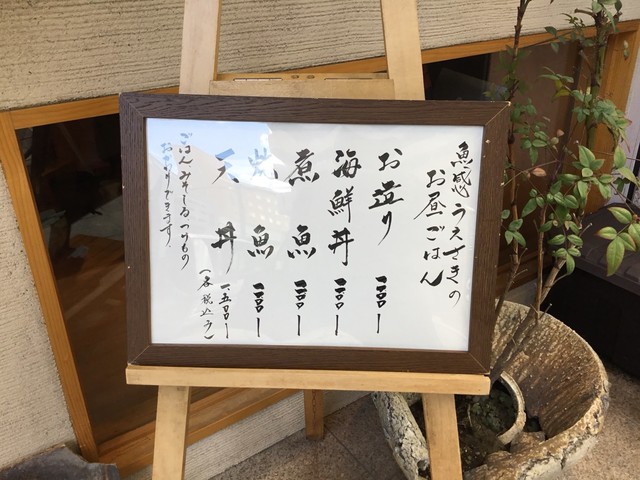 魚感うえさきの
お昼ごはん
お造り 一二〇〇ー
海鮮丼 一二〇〇ー
煮魚 一二〇〇ー
焼魚 一二〇〇ー
天丼 一五〇〇ー
(各税込う)
ごはん みそしる つけもの
おかわりできます。